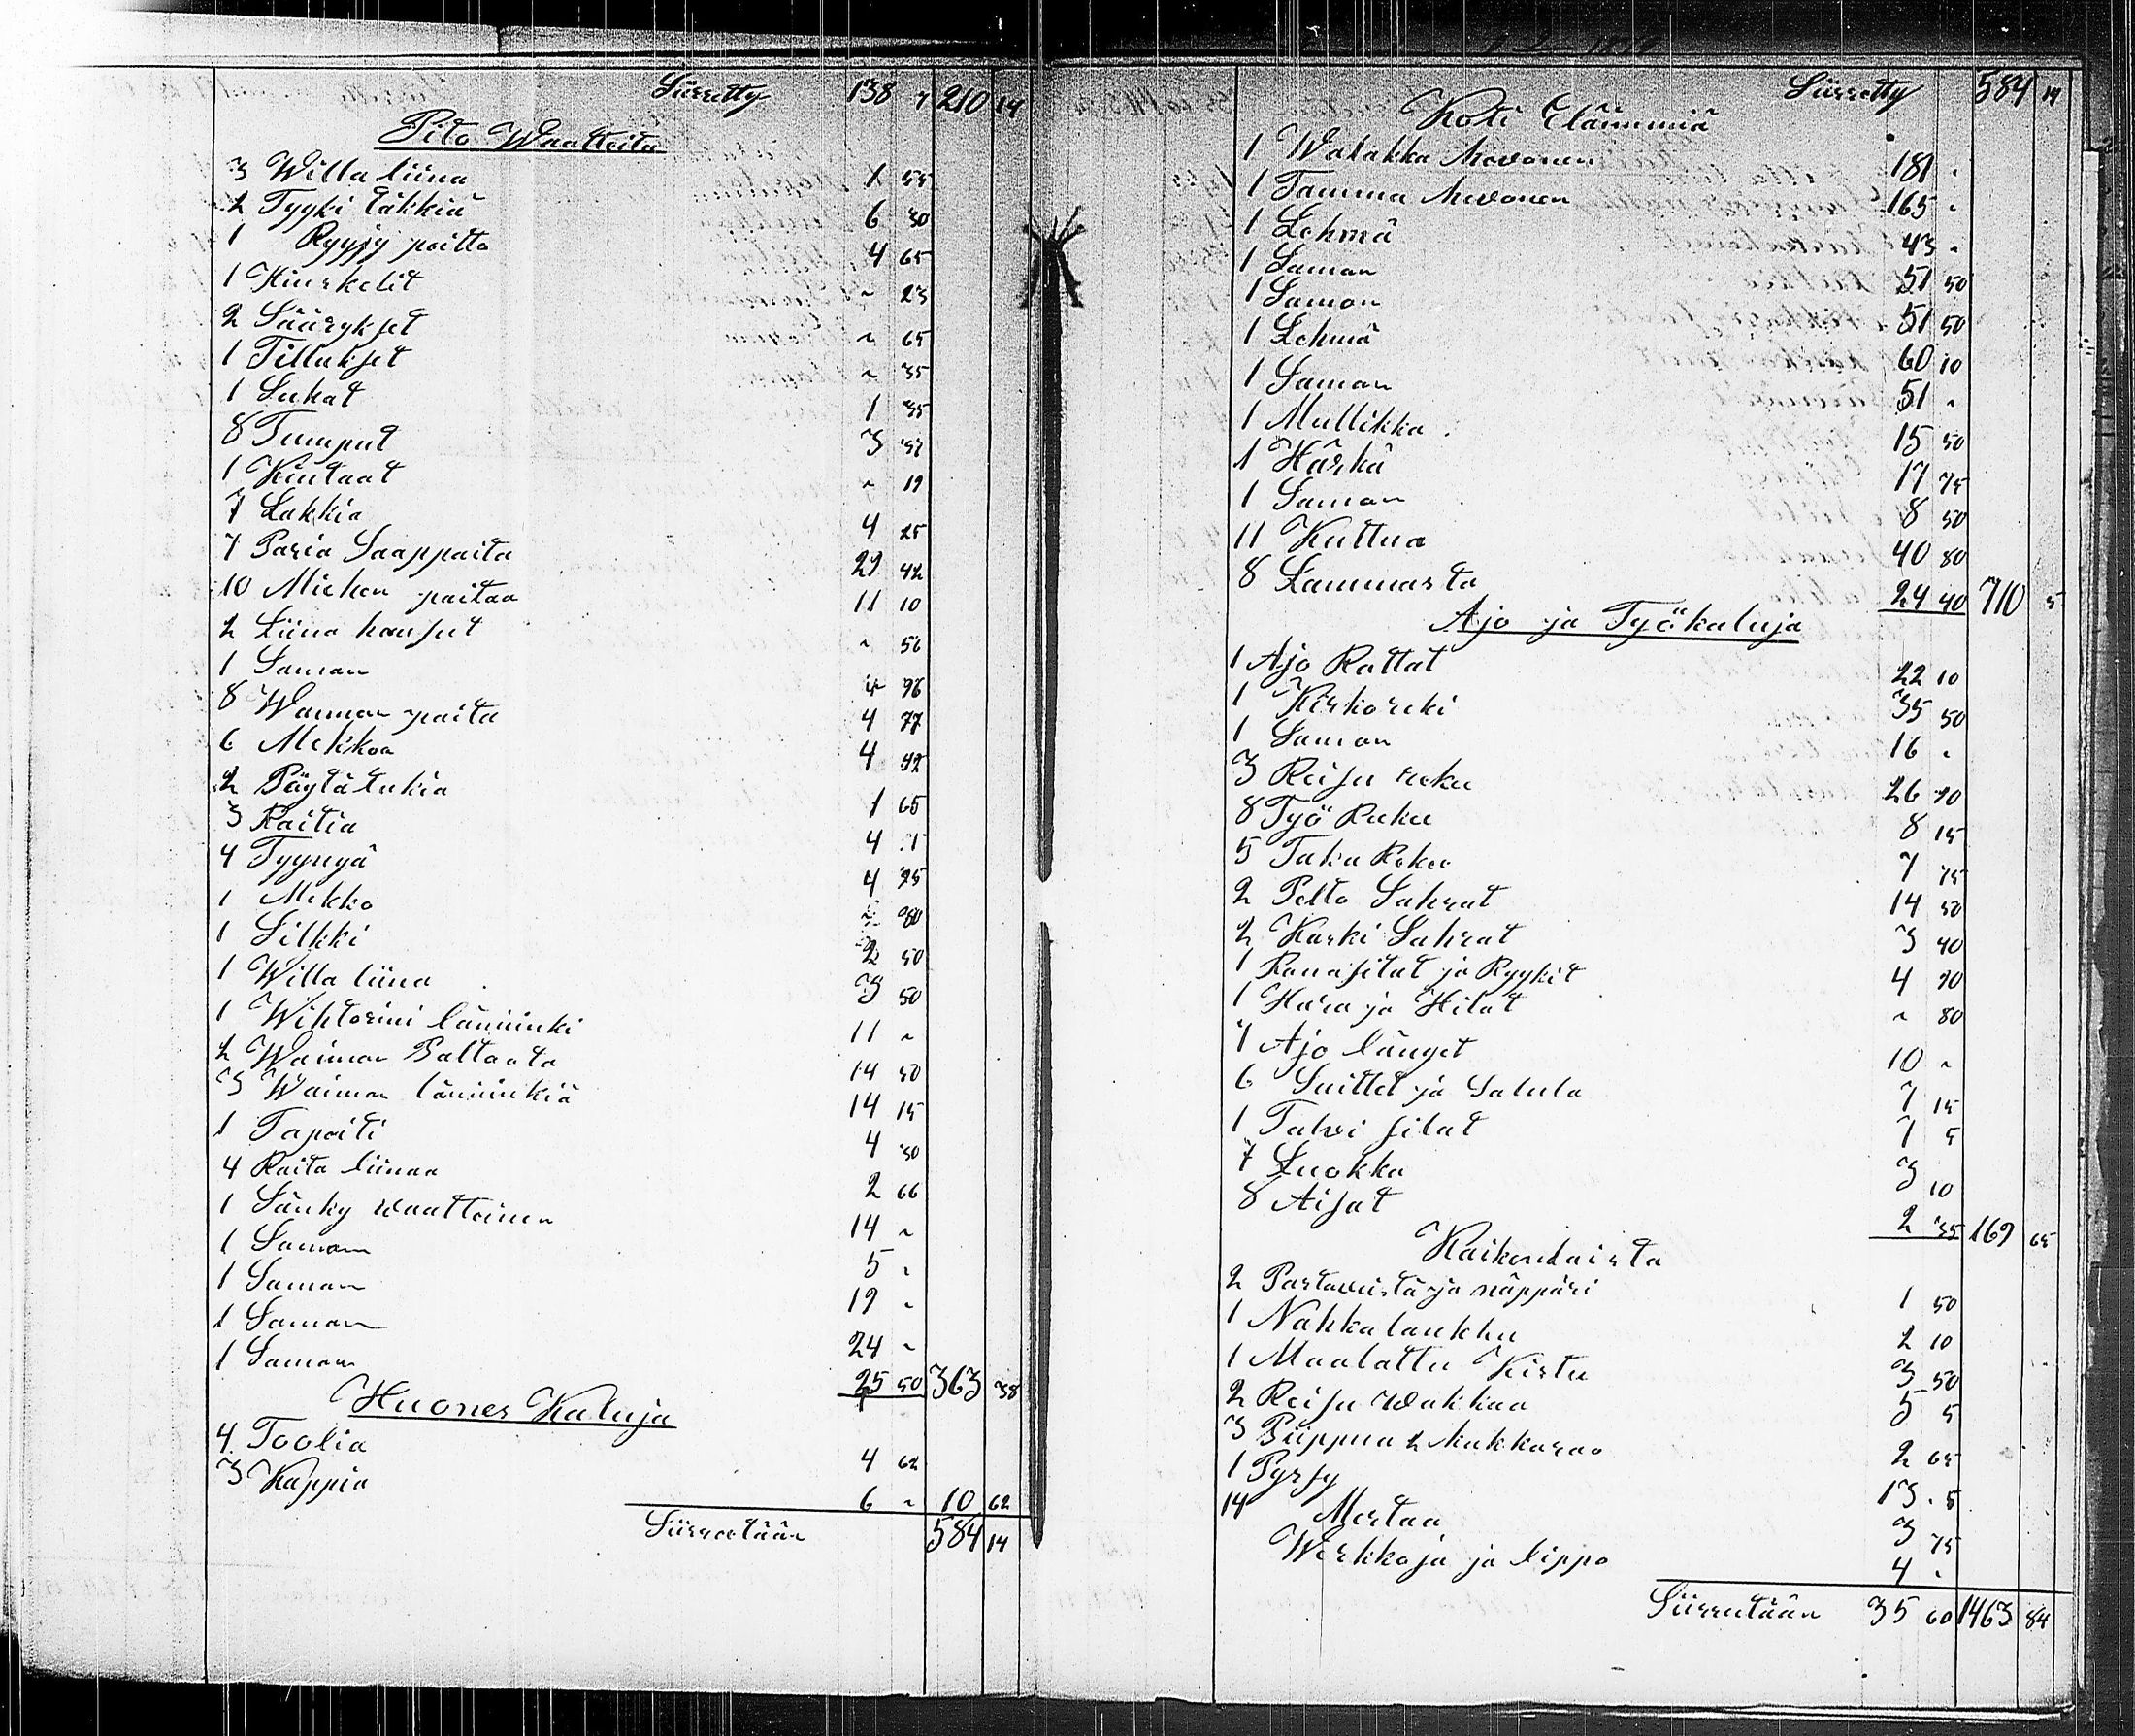 Siirretty 138 4 210 14
Pito Waatteita
3 Willa liina 1 55
2 Tyyki täkkiä 6 30
1 Ryyjy peitto 4 65
1 Hinskelit " 23
2 Säärykset " 65
1 Tillukset " 35
1 Sukat 1 35
8 Tumput 3 37
1 Kintaat " 19
7 Lakkia 4 25
7 Paria Saappaita 29 42
10 Miehen paitaa 11 10
2 Liina housut " 56
1 Saman 96
8 Waimon paita 4 77
6 Mekkoa 4 92
2 Pöytä tukia 1 65
3 Raitia 4
4 Tyynyä 4 25
1 Mekko 80
1 Silkki 2 50
1 Willa liina 3 50
1 Wihtorini länninki 11 "
2 Waimon Paltoota 14 50
3 Waimon länninkiä 14 15
1 Tapeiti 4 30
4 Raita liinaa 2 66
1 Sänky waatteinen 14 "
1 Saman 5 "
1 Saman 19 "
1 Saman 24 "
1 Saman 25 50 363 38
Huones Kaluja
4 Toolia 4 62
3 Kappia 6 " 10 62
Siirretään 584 14
Siirretty 584 14
Koti Eläimmiä
1 Walakka hevonen 181 "
1 Tamma hevonen 165 "
1 Lehmä 43 "
1 Saman 51 50
1 Saman 51 50
1 Lehmä 60 10
1 Saman 51 "
1 Mullikka 15 50
1 Härkä 17 75
1 Saman 8 50
11 Kuttua 40 80
8 Lammasta 24 40 710 5
Ajo ja Työkaluja
1 Ajo Rattat 22 10
1 Kirkoreki 35 50
1 Saman 16 "
3 Reisu reke 26 90
8 Työ Reke 8 15
5 Taka Reke 7 75
2 Pelto Sahrat 14 50
2 Karki Sahrat 3 40
1 Ranasilat ja Ryykit 4 90
1 Hara ja Hilat " 80
7 Ajo länget 10 "
6 Suittet ja Satula 7 15
1 Talvi silat 1 5
7 Luokka 3 10
8 Aisat 2 35 169 65
Kaikenlaista
2 Partaveistä ja näppäri 1 50
1 Nahkalaukku 2 10
1 Maalattu Kirstu 3 50
2 Reisu wakkaa 5 5
3 Piippua 2 kukkaroo 2 65
1 Pyrsy 13 5
14 Mertaa 3 75
Werkkoja ja lippo 4 "
Siirretään 35 60 1463 84